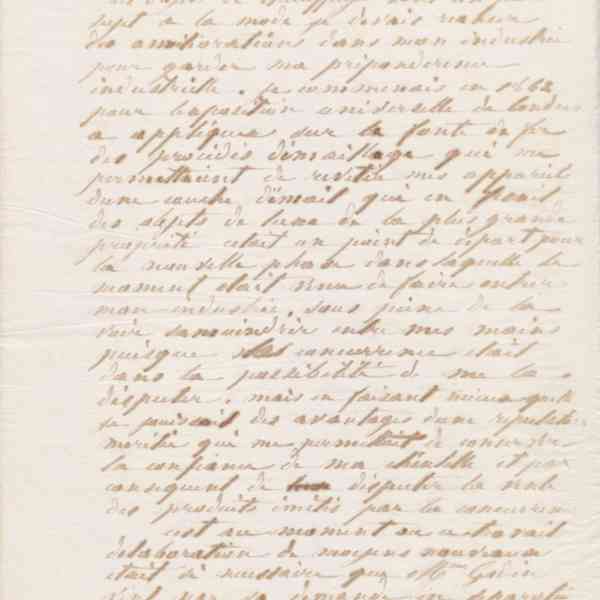 sujet à la mode je devais realiser
des améliorations dans mon industrie
pour garder ma préponderence
industrielle. je commencais en 1862
pour l'exposition universelle de londres
a appliquer sur la fonte de fer
des procédés d'émaillage qui me
permettaient de revetir mes appareils
d'une couche d'émail qui en ferait
des objets de luxe de la plus grande
propriété c'etait un point de départ pour
la nouvelle phase dans laquelle le
moment etait venu de faire entrer
mon industrie, sous peine de la
voir s'amoindrir entre mes mains
puisque la concurrence etait
dans la possibilité de me la
disputer. mais en faisant mieux qu'elle
je jouissais des avantages d'une reputation
meritée qui me permettait de conserver
la confiance de ma clientelle et par
consequent de disputer la vente
des produits imités par la concurrence
c'est au moment ou ce travail
d'élaboration de moyens nouveaux
etait si necessaire que Mme Godin
vint par sa demande en separation